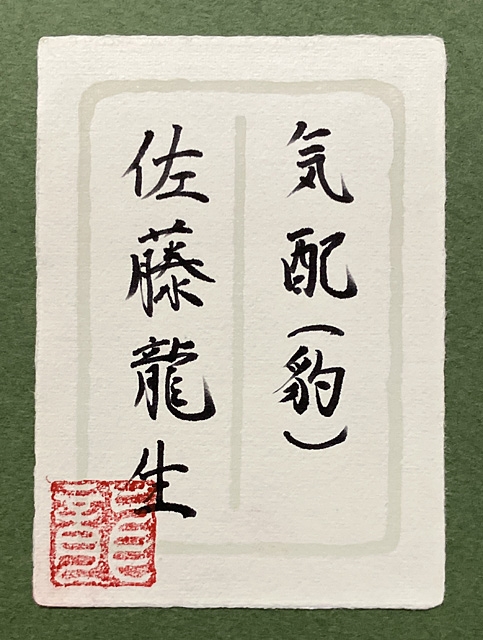 気配(豹)
佐藤龍生
龍